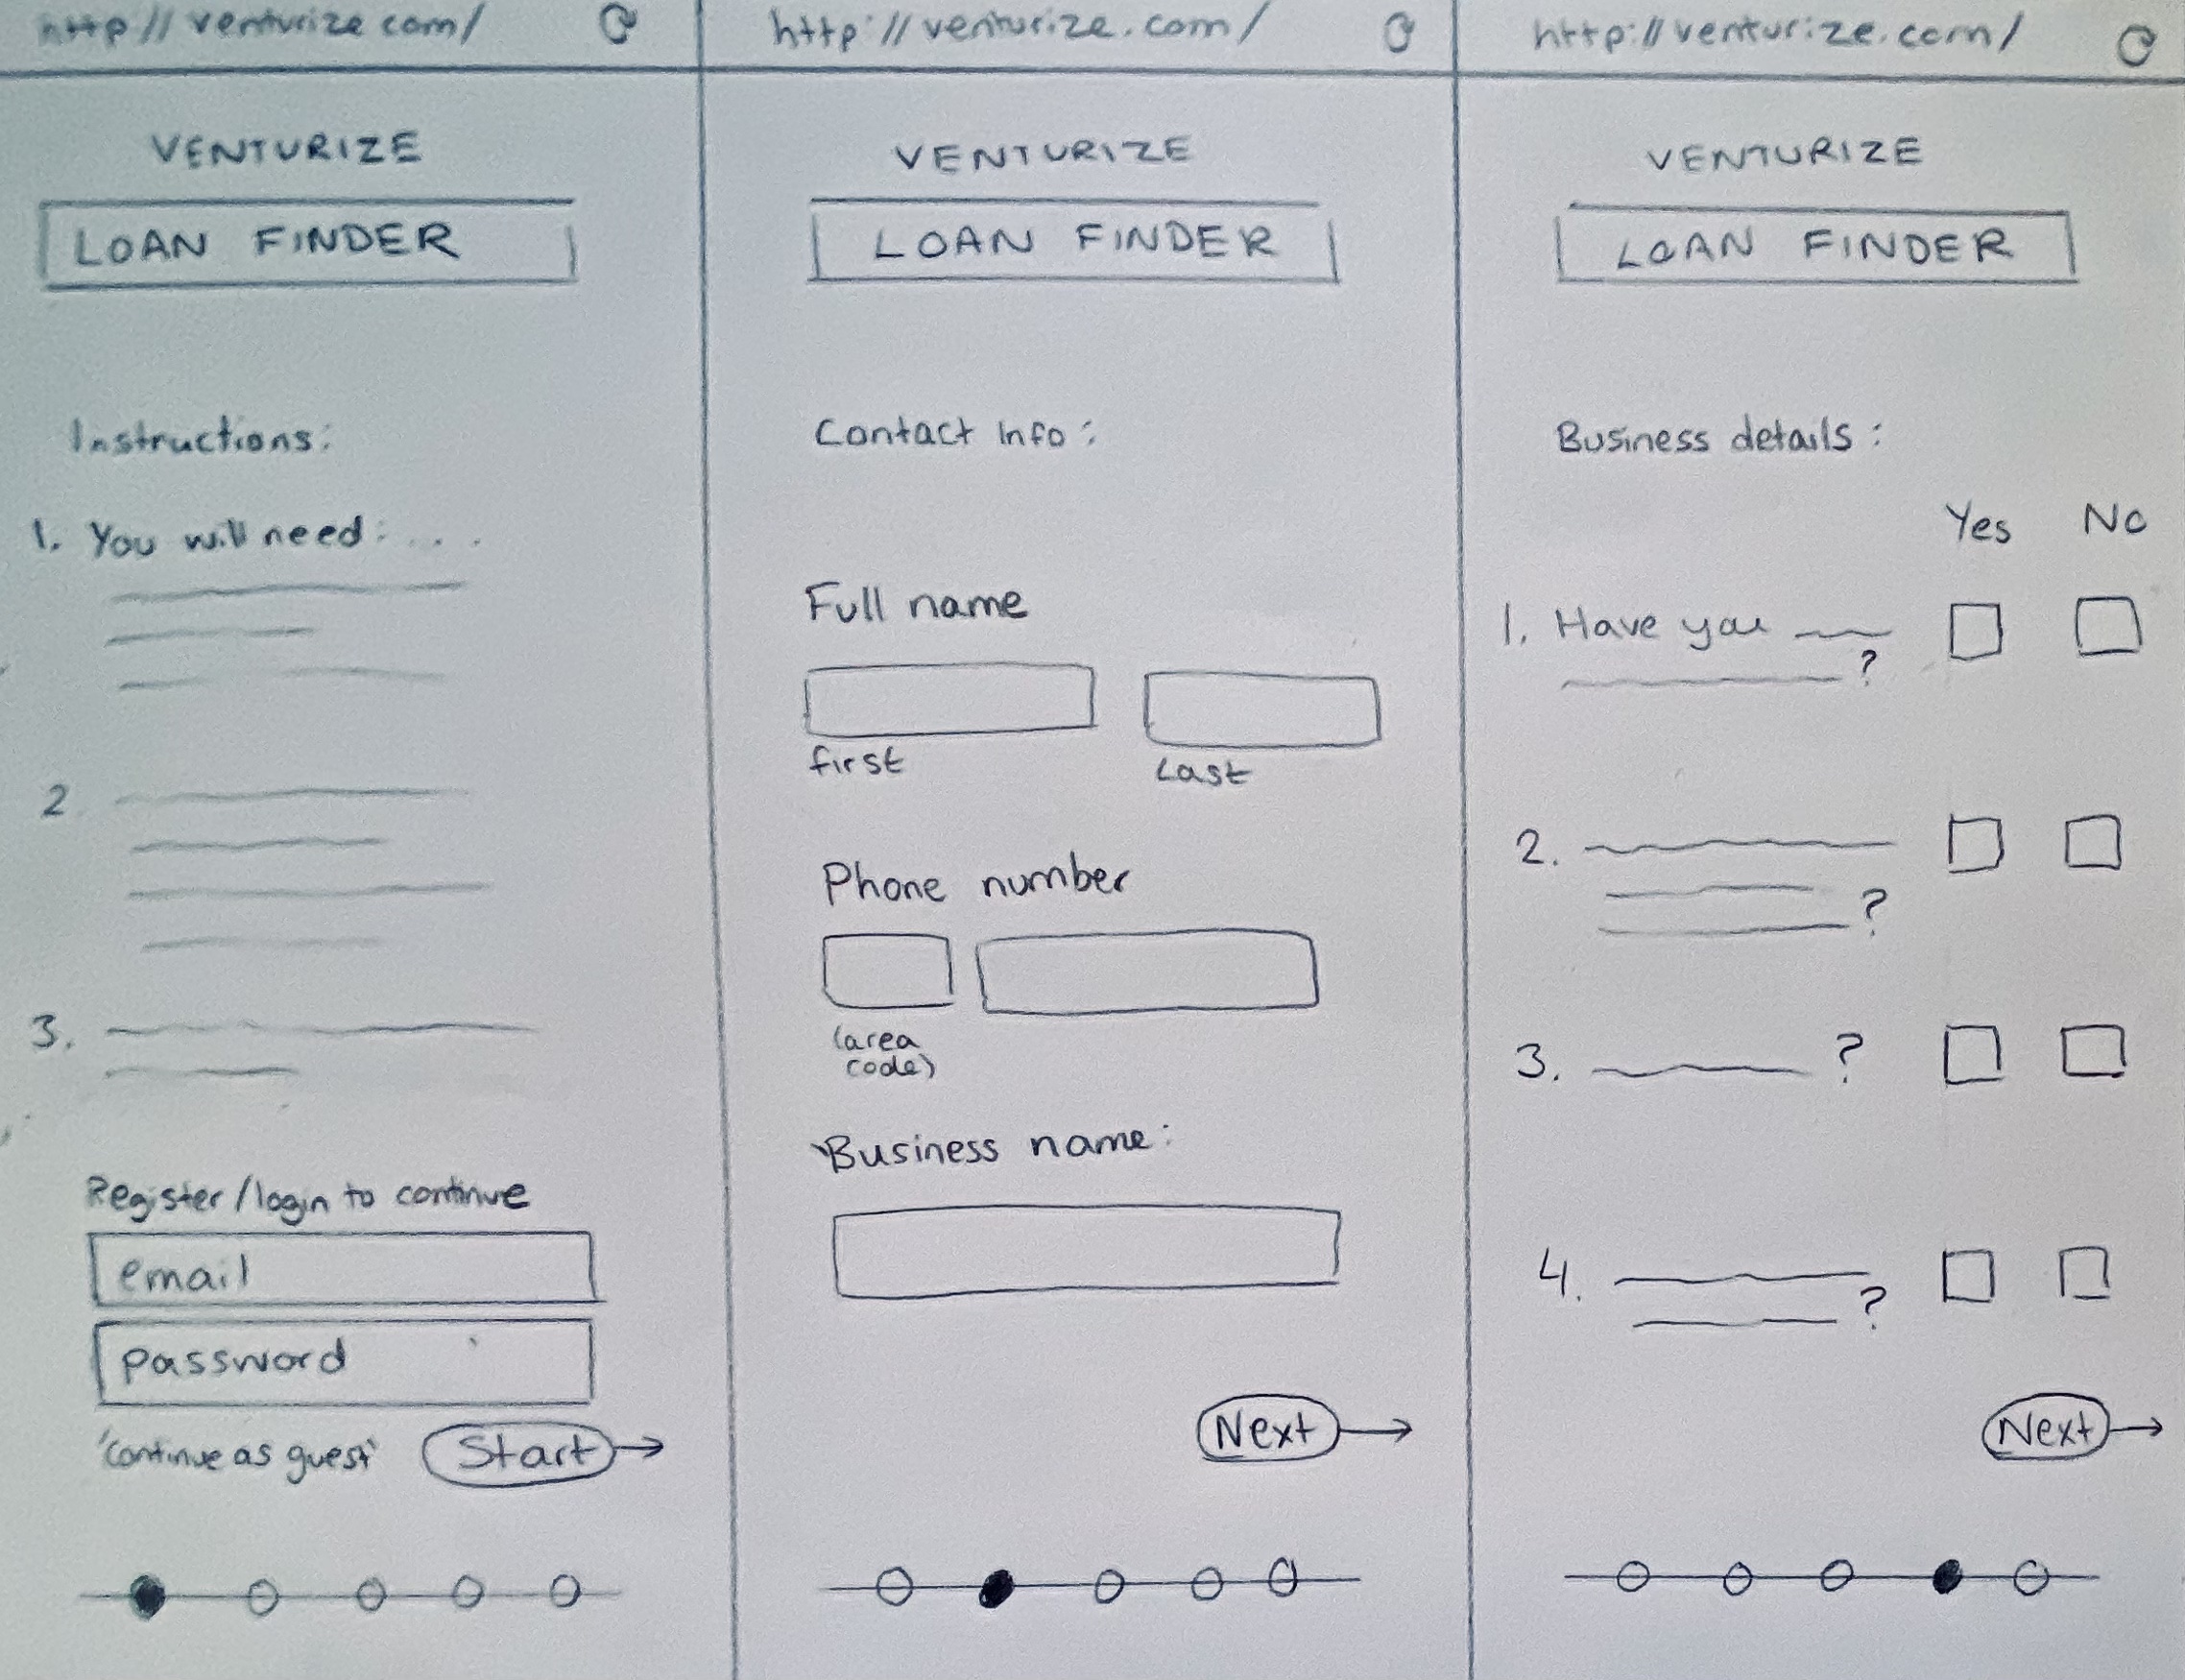 http:// venturize com/
VENTURIZE
LOAN FINDER
Instructions:
1. You will need: ...
2
3.
Register/login to continue
email
password
'Continue as guest'
Start
http://venturize.com/
VENTURIZE
LOAN FINDER
Contact Info:
Full name
first
Last
Phone number
(area
code)
Business name:
Next
http://venturize.com/
VENTURIZE
LOAN FINDER
Business details:
Yes No
1. Have you
?
2.
?
3. ?
4.
?
Next